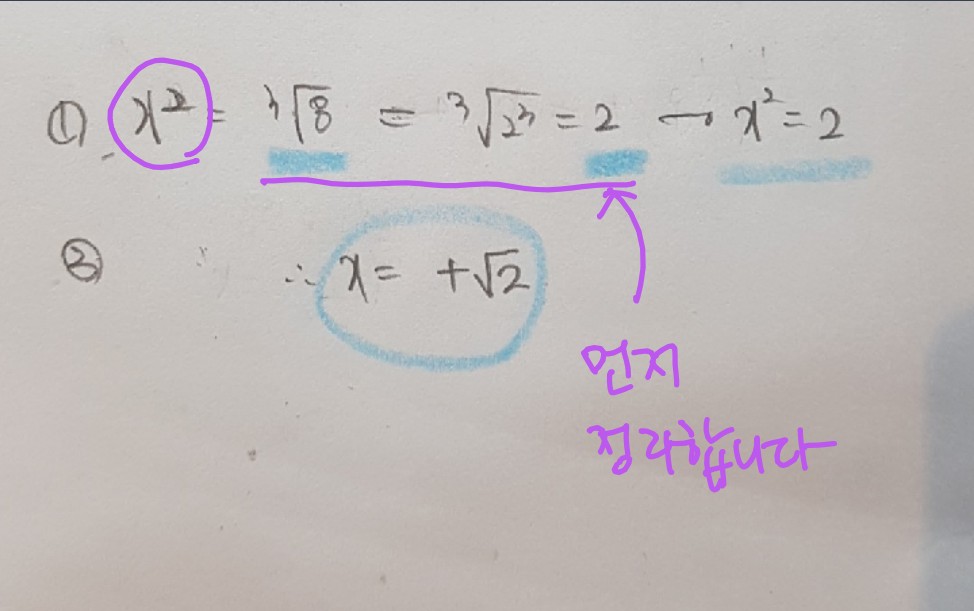 ① x² = ³√8 = ³√2³ = 2 → x² = 2
② ∴ x = +√2
먼저
정리합니다